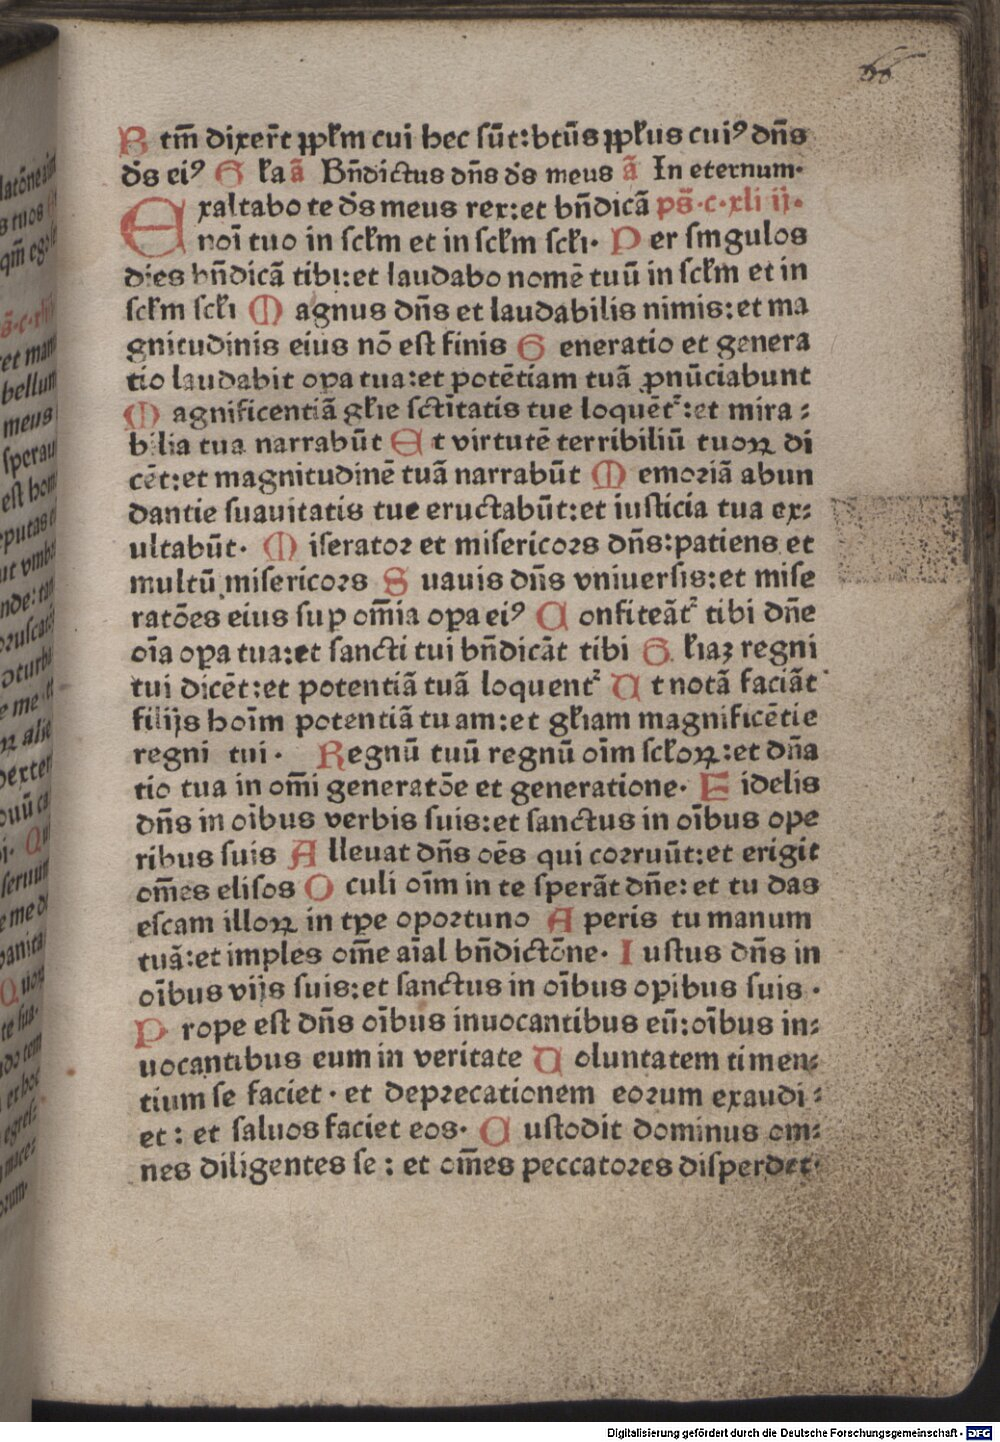 66
B tm̄ dixer̄t ꝓpłm cui hec sūt:btūs ꝓpłus cuiꝰ dn̄s
d̄s eiꝰ G ła ā Bn̄dictus dn̄s d̄s meus ā In eternum·
Exaltabo te d̄s meus rex:et bn̄dicā ps̄·c·xliij·
noī tuo in scłm et in scłm scłi· P er singulos
dies bn̄dicā tibi:et laudabo nomē tuū in scłm et in
scłm scłi M agnus dn̄s et laudabilis nimis:et ma
gnitudinis eius nō est finis G eneratio et genera
tio laudabit oꝑa tua:et potētiam tuā ꝓnūciabunt
M agnificentiā głie sctītatis tue loquēt᷑:et mira:
bilia tua narrabūt E t virtutē terribiliū tuoꝝ di
cēt:et magnitudinē tuā narrabūt M emoriā abun
dantie suauitatis tue eructabūt:et iusticia tua ex:
ultabūt· M iserator et misericors dn̄s:patiens et
multū misericors S uauis dn̄s vniuersis:et mise
ratōes eius suꝑ om̄ia oꝑa eiꝰ C onfiteāt᷑ tibi dn̄e
oīa oꝑa tua:et sancti tui bn̄dicāt tibi G łiaꝫ regni
tui dicēt:et potentiā tuā loquent᷑ U t notā faciāt
filijs hoīm potentiā tuam:et głiam magnificētie
regni tui· Regnū tuū regnū oīm scłoꝝ:et dn̄a
tio tua in om̄i generatōe et generatione· F idelis
dn̄s in oībus verbis suis:et sanctus in oībus ope
ribus suis A lleuat dn̄s oēs qui corruūt:et erigit
om̄es elisos O culi oīm in te sperāt dn̄e:et tu das
escam illoꝝ in tꝑe oportuno A peris tu manum
tuā:et imples om̄e aīal bn̄dictōne· I ustus dn̄s in
oībus vijs suis:et sanctus in oībus oꝑibus suis·
P rope est dn̄s oībus inuocantibus eū:oībus in:
uocantibus eum in veritate U oluntatem timen:
tium se faciet· et deprecationem eorum exaudi:
et: et saluos faciet eos· C ustodit dominus om:
nes diligentes se: et om̄es peccatores disperdet·
Digitalisierung gefördert durch die Deutsche Forschungsgemeinschaft - DFG